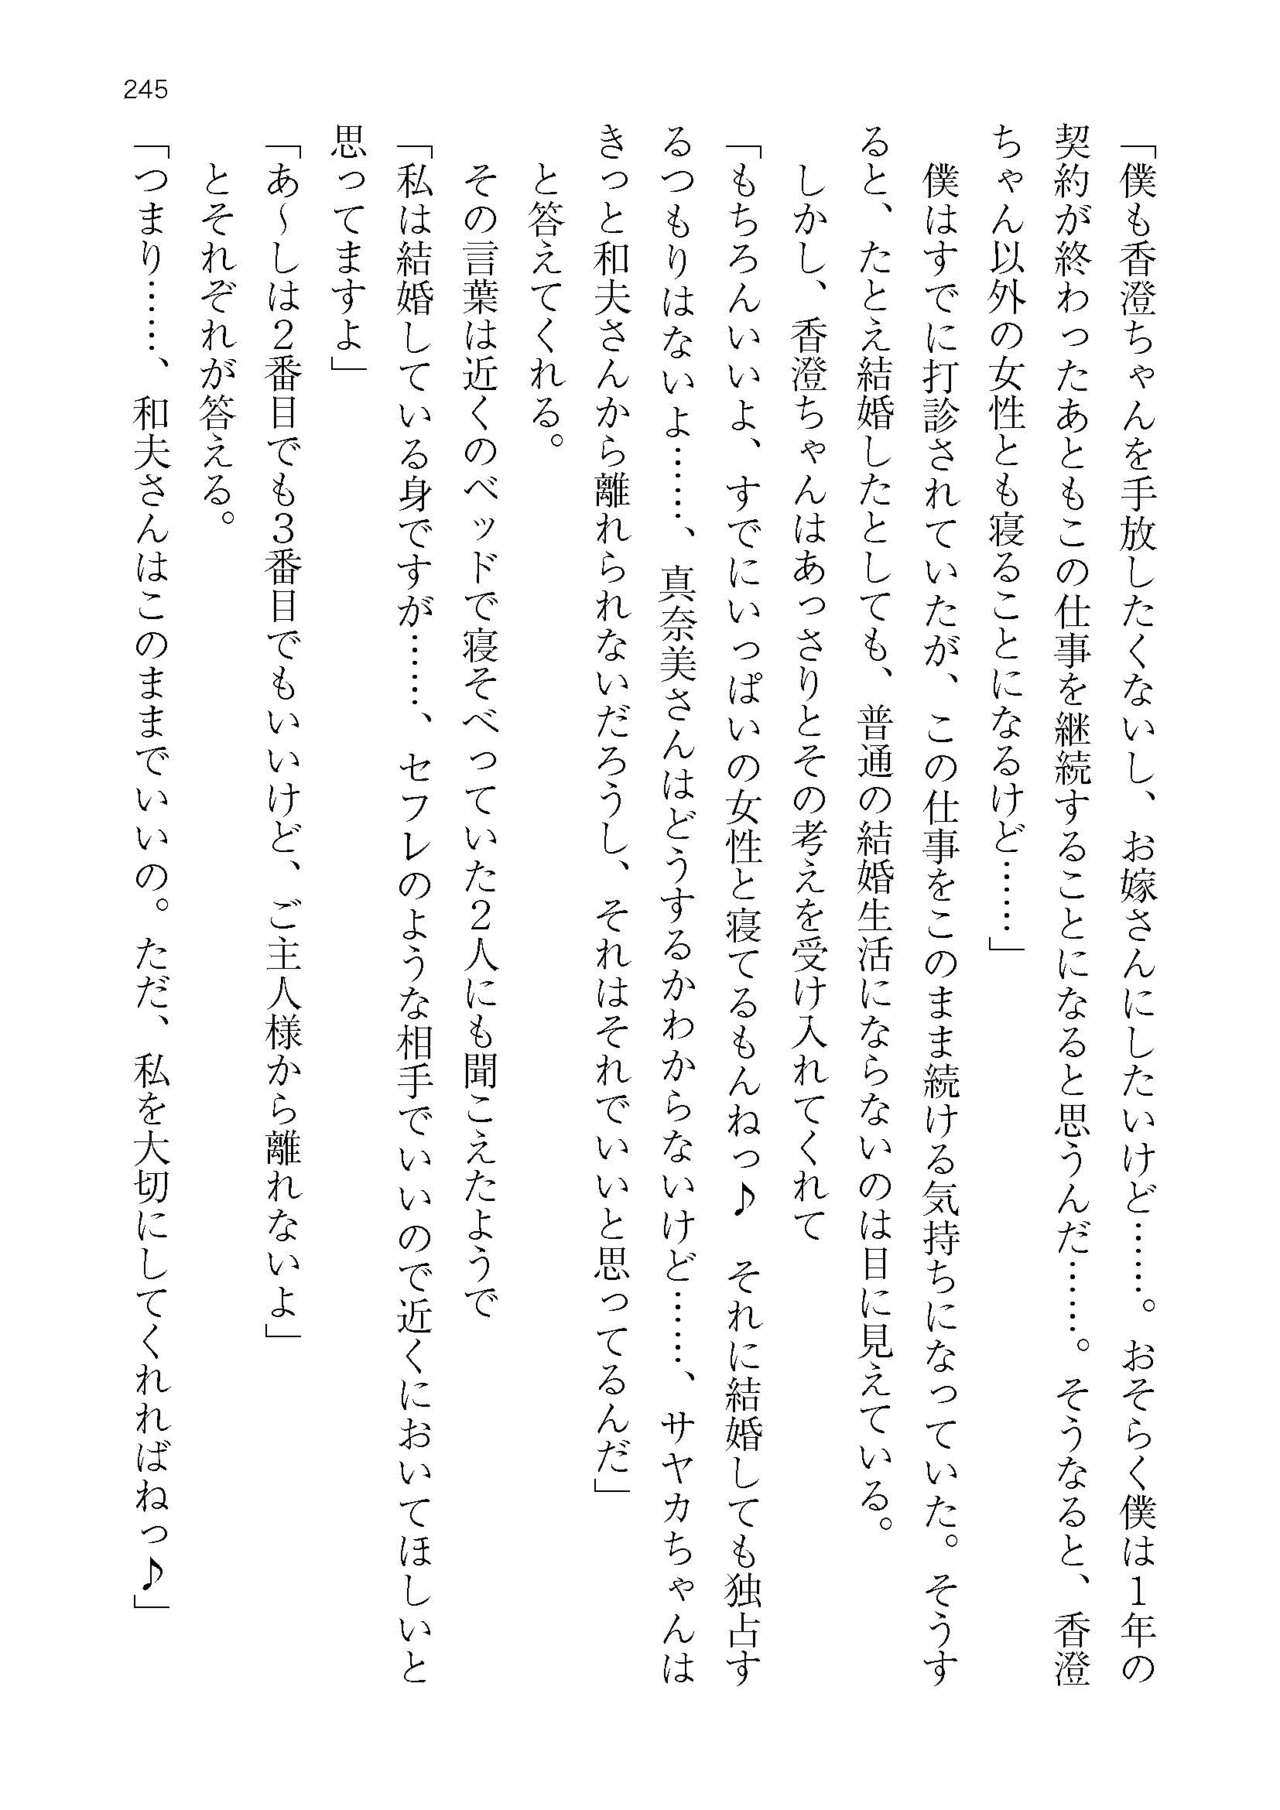 245
「僕も香澄ちゃんを手放したくないし、お嫁さんにしたいけど……。おそらく僕は１年の
契約が終わったあともこの仕事を継続することになると思うんだ……。そうなると、香澄
ちゃん以外の女性とも寝ることになるけど……」
僕はすでに打診されていたが、この仕事をこのまま続ける気持ちになっていた。そうす
ると、たとえ結婚したとしても、普通の結婚生活にならないのは目に見えている。
しかし、香澄ちゃんはあっさりとその考えを受け入れてくれて
「もちろんいいよ、すでにいっぱいの女性と寝てるもんねっ♪　それに結婚しても独占す
るつもりはないよ……、真奈美さんはどうするかわからないけど……、サヤカちゃんは
きっと和夫さんから離れられないだろうし、それはそれでいいと思ってるんだ」
と答えてくれる。
その言葉は近くのベッドで寝そべっていた２人にも聞こえたようで
「私は結婚している身ですが……、セフレのような相手でいいので近くにおいてほしいと
思ってますよ」
「あ～しは２番目でも３番目でもいいけど、ご主人様から離れないよ」
とそれぞれが答える。
「つまり……、和夫さんはこのままでいいの。ただ、私を大切にしてくれればねっ♪」